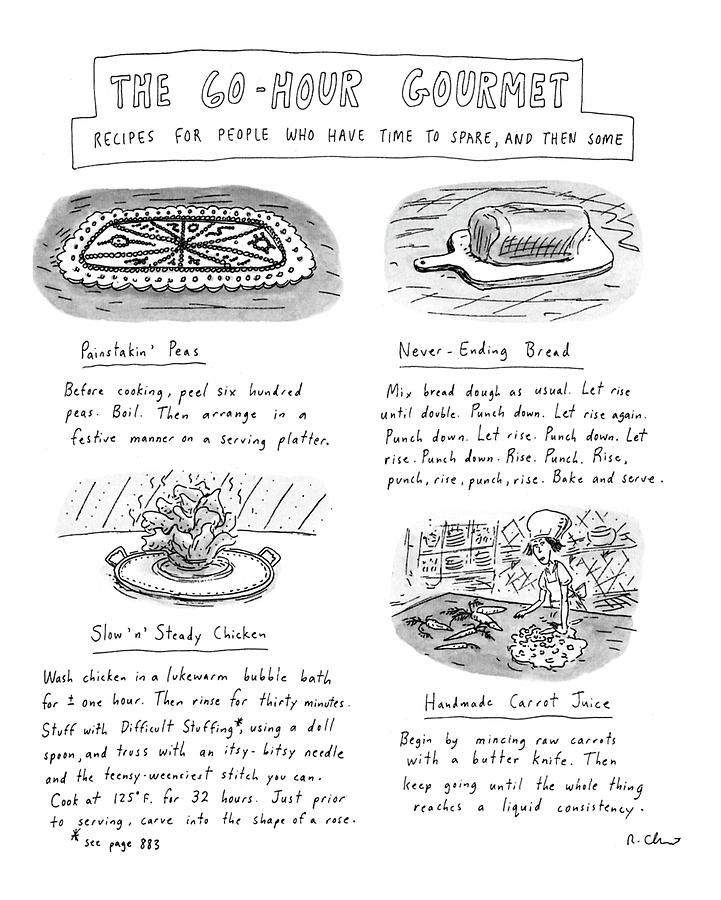 THE 60-HOUR GOURMET
RECIPES FOR PEOPLE WHO HAVE TIME TO SPARE, AND THEN SOME
Painstakin' Peas
Before cooking, peel six hundred
peas. Boil. Then arrange in a
festive manner on a serving platter.
Never-Ending Bread
Mix bread dough as usual. Let rise
until double. Punch down. Let rise again.
Punch down. Let rise. Punch down. Let
rise. Punch down. Rise. Punch. Rise,
punch, rise, punch, rise. Bake and serve.
Slow 'n' Steady Chicken
Wash chicken in a lukewarm bubble bath
for ± one hour. Then rinse for thirty minutes.
Stuff with Difficult Stuffing*, using a doll
spoon, and truss with an itsy-bitsy needle
and the teensy-weensiest stitch you can.
Cook at 125° F. for 32 hours. Just prior
to serving, carve into the shape of a rose.
* see page 883
Handmade Carrot Juice
Begin by mincing raw carrots
with a butter knife. Then
keep going until the whole thing
reaches a liquid consistency.
R. Chast